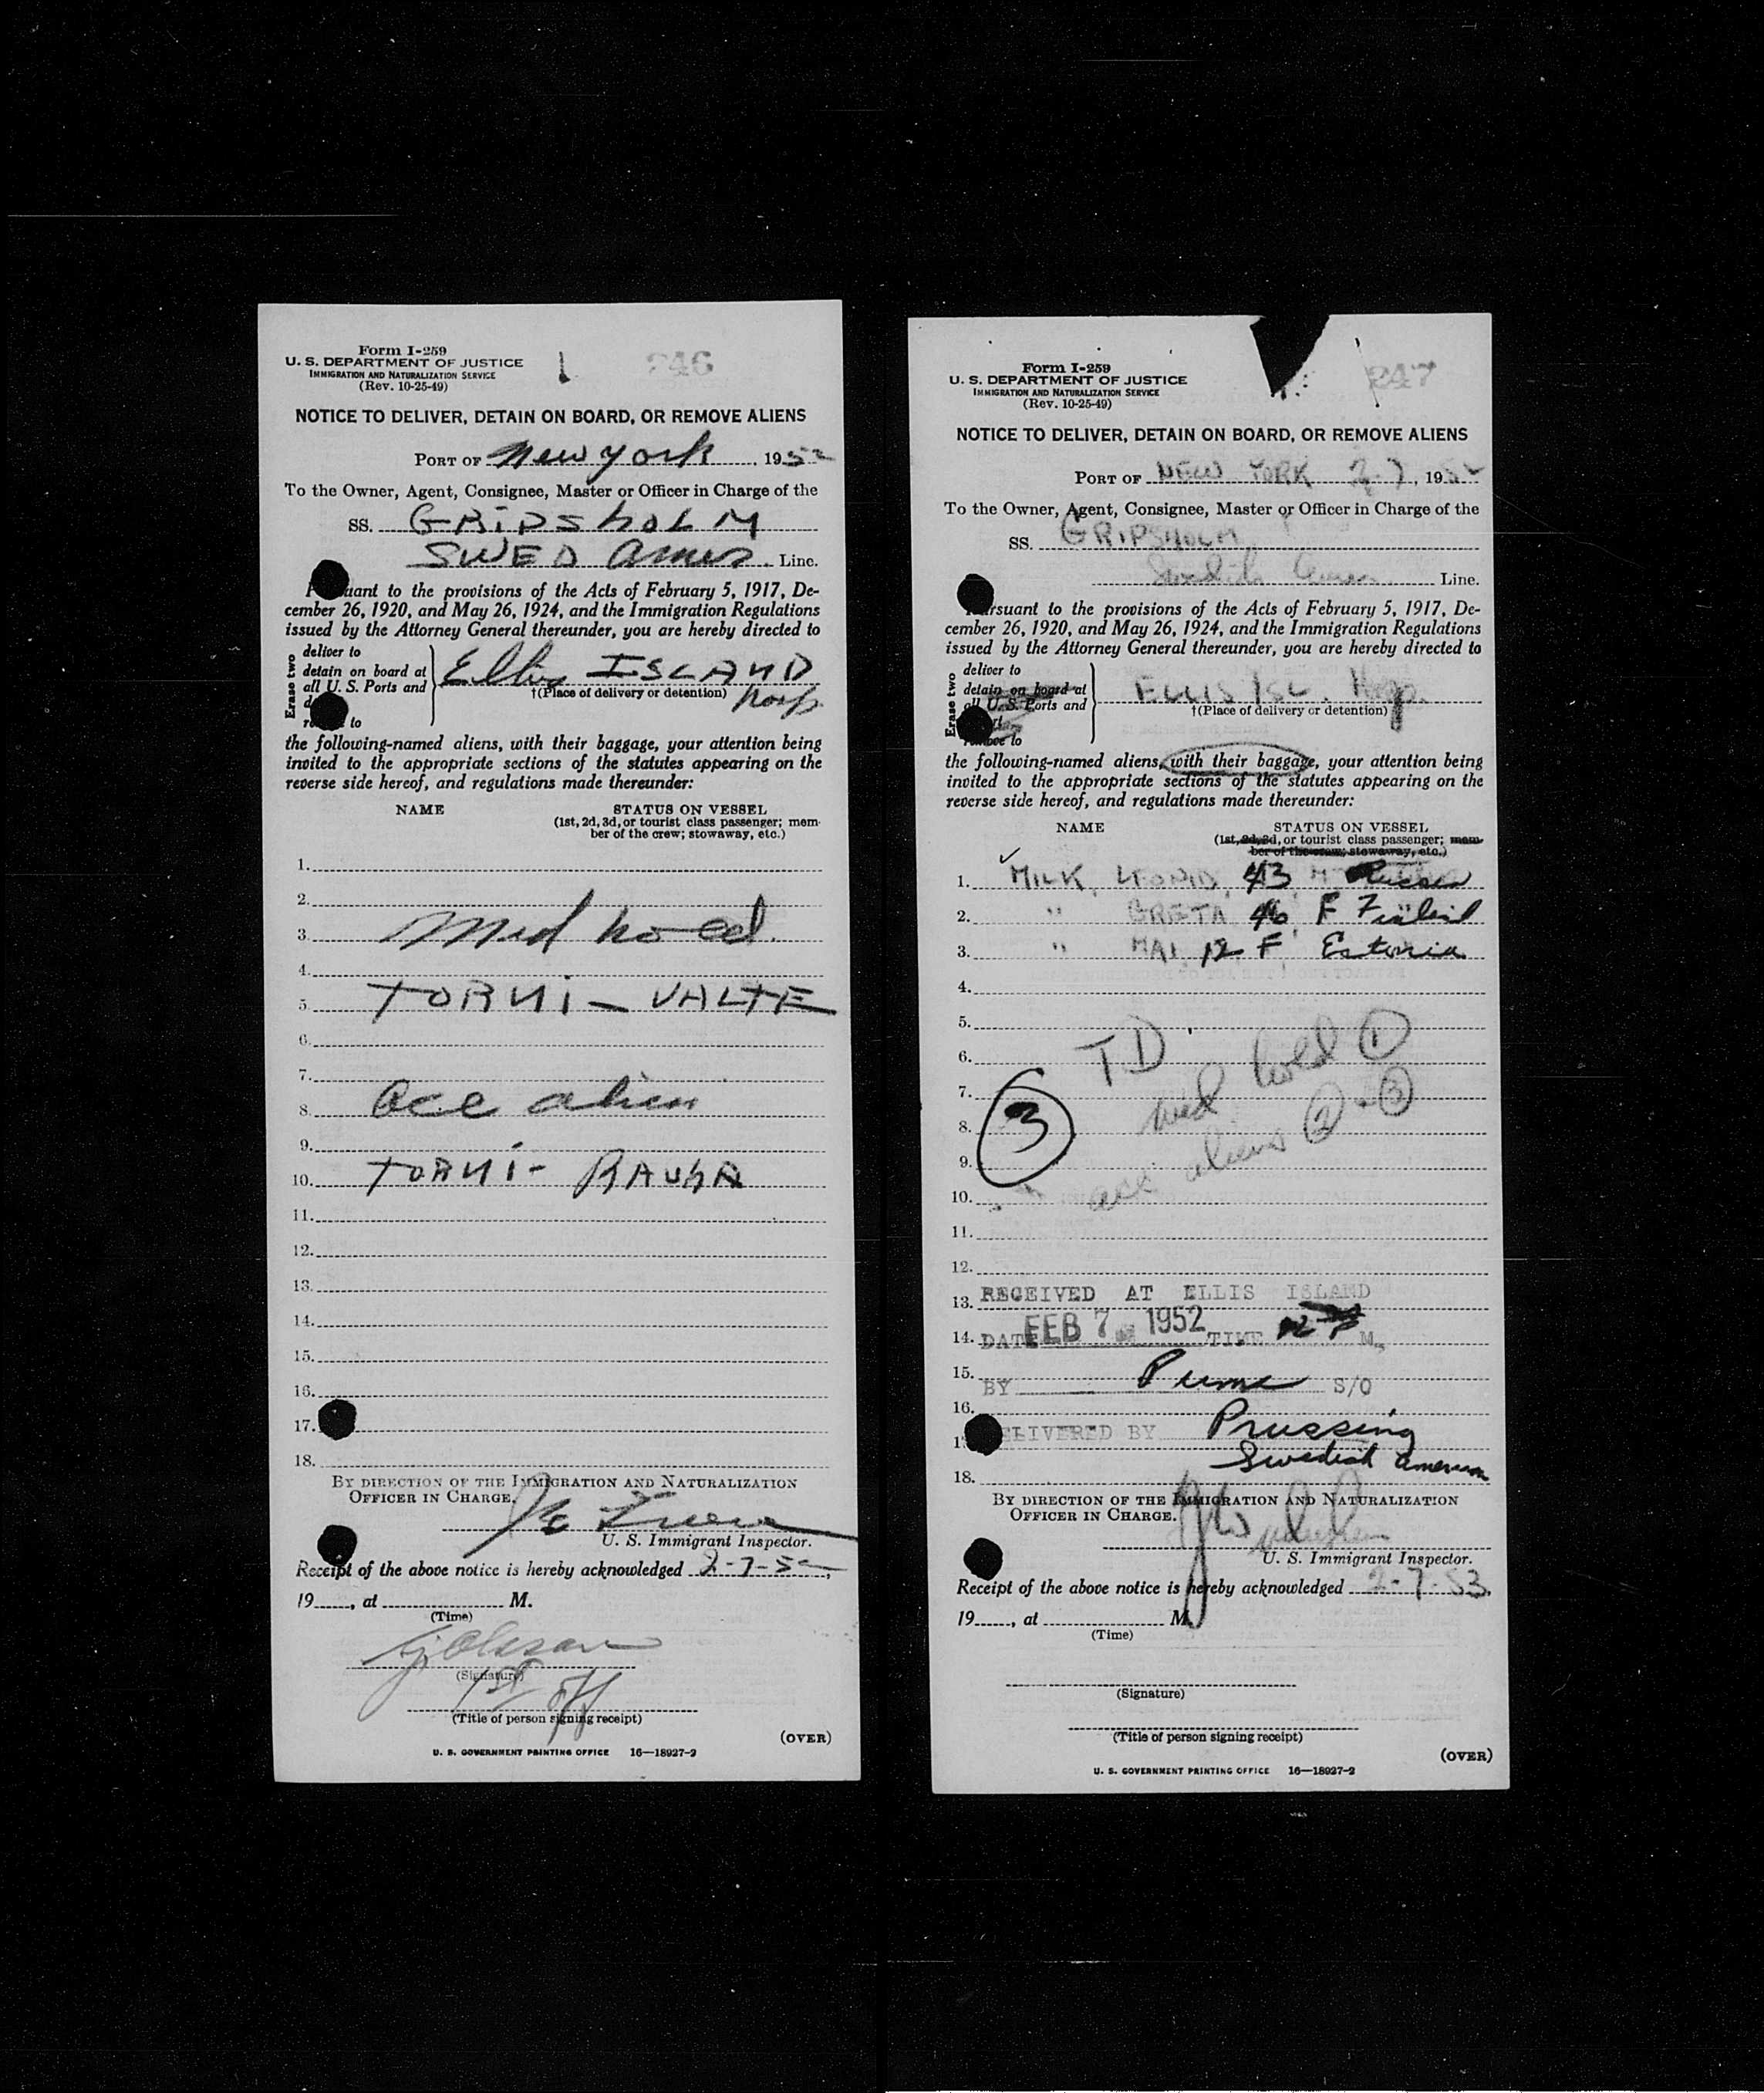 Form I-259
U. S. DEPARTMENT OF JUSTICE
IMMIGRATION AND NATURALIZATION SERVICE
(Rev. 10-25-49)
246
NOTICE TO DELIVER, DETAIN ON BOARD, OR REMOVE ALIENS
PORT OF New york, 1952
To the Owner, Agent, Consignee, Master or Officer in Charge of the
SS. GRIPSHOLM
SWED Amer Line.
Pursuant to the provisions of the Acts of February 5, 1917, De-
cember 26, 1920, and May 26, 1924, and the Immigration Regulations
issued by the Attorney General thereunder, you are hereby directed to
Erase two
deliver to
detain on board at
all U. S. Ports and
to
Ellis ISLAND
†(Place of delivery or detention) hosp
the following-named aliens, with their baggage, your attention being
invited to the appropriate sections of the statutes appearing on the
reverse side hereof, and regulations made thereunder:
NAME STATUS ON VESSEL
(1st, 2d, 3d, or tourist class passenger; mem-
ber of the crew; stowaway, etc.)
1.
2.
3. Med
4.
5. TORNI - VALTE
6.
7.
8. acc alien
9.
10. TORNI - RAUHA
11.
12.
13.
14.
15.
16.
17.
18.
BY DIRECTION OF THE IMMIGRATION AND NATURALIZATION
OFFICER IN CHARGE.
U. S. Immigrant Inspector.
Receipt of the above notice is hereby acknowledged 2-7-52,
19, at M.
(Time)
(Signature)
1st off
(Title of person signing receipt)
(OVER)
U. S. GOVERNMENT PRINTING OFFICE 16—18927-2
Form I-259
U. S. DEPARTMENT OF JUSTICE
IMMIGRATION AND NATURALIZATION SERVICE
(Rev. 10-25-49)
247
NOTICE TO DELIVER, DETAIN ON BOARD, OR REMOVE ALIENS
PORT OF NEW YORK 2-7, 1952
To the Owner, Agent, Consignee, Master or Officer in Charge of the
SS. GRIPSHOLM
Swedish Amer. Line.
Pursuant to the provisions of the Acts of February 5, 1917, De-
cember 26, 1920, and May 26, 1924, and the Immigration Regulations
issued by the Attorney General thereunder, you are hereby directed to
Erase two
deliver to
detain on board at
all U. S. Ports and
remove to
ELLIS ISL. Hosp.
†(Place of delivery or detention)
the following-named aliens, with their baggage, your attention being
invited to the appropriate sections of the statutes appearing on the
reverse side hereof, and regulations made thereunder:
NAME STATUS ON VESSEL
(1st, 2d, 3d, or tourist class passenger; mem-
ber of the crew; stowaway, etc.)
1. MILK, LEONID, 43 M Russia
2. " GRETA 46 F Finland
3. " MAI 12 F Estonia
4.
5.
6. TD
7. med hold 1
8. 3
9. acc aliens 2 - 3
10.
11.
12.
RECEIVED AT ELLIS ISLAND
13.
14. DATE FEB 7 1952 TIME M.
15.
BY S/O
16.
17. DELIVERED BY Prussing
Swedish American
18.
BY DIRECTION OF THE IMMIGRATION AND NATURALIZATION
OFFICER IN CHARGE.
U. S. Immigrant Inspector.
Receipt of the above notice is hereby acknowledged 2-7-53.
19, at M.
(Time)
(Signature)
(Title of person signing receipt)
(OVER)
U. S. GOVERNMENT PRINTING OFFICE 16—18927-2